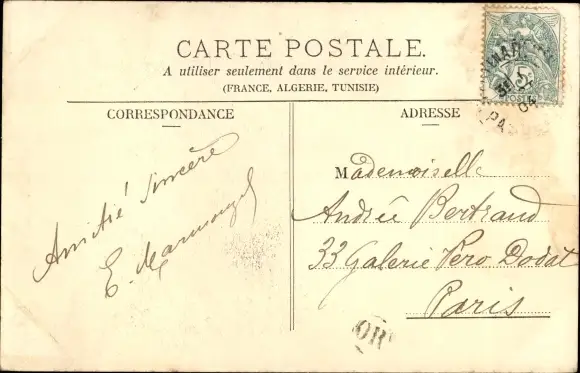 CARTE POSTALE.
A utiliser seulement dans le service intérieur.
(FRANCE, ALGERIE, TUNISIE)
CORRESPONDANCE
ADRESSE
Amitié sincère
E.
Mademoiselle
Andrée Bertrand
33 Galerie Vero Dodat
Paris
OR
5
POSTES
04